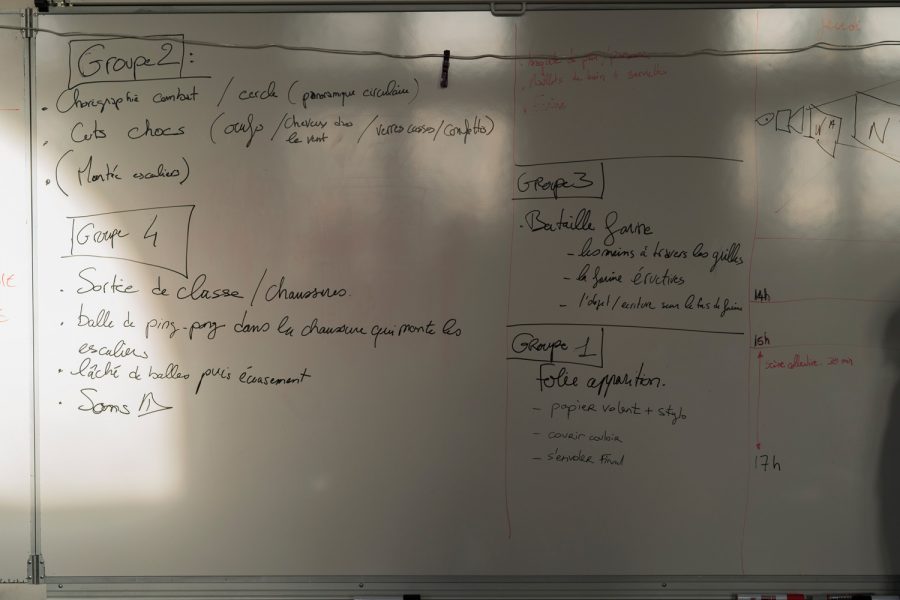 Groupe 2 :
. Choregraphie combat / cercle (panoramique circulaire)
. Cuts chocs (oeufs / cheveux dans le vent / verres casses / confettis)
. (Montée escaliers)
Groupe 4
. Sortie de classe / chaussures.
. balle de ping-pong dans la chaussure qui monte les
escaliers
. lâché de balles puis écrasement
. Sons
maillots de bain + serviettes
Groupe 3
. Bataille farine
- les mains à travers les grilles
- la farine éructives
- l'objet / écriture sur le tas de farine
Groupe 1
Folie apparition.
- papier volant + stylo
- courir couloir
- s'envoler final
N
14h
15h
scène collective 30 min
17h